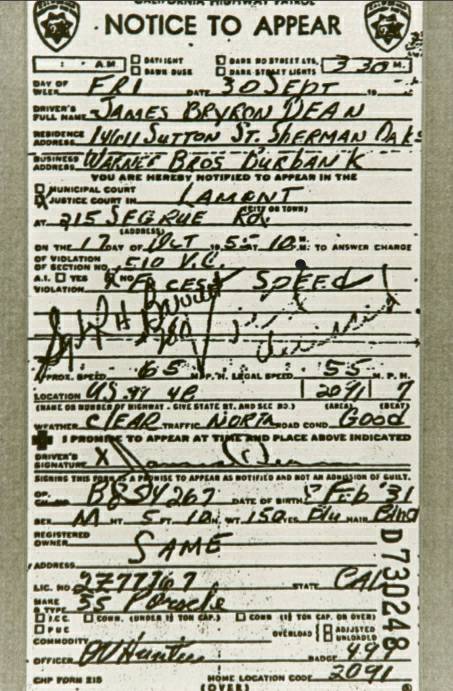 CALIFORNIA HIGHWAY PATROL
NOTICE TO APPEAR
: A.M. DAYLIGHT DARK NO STREET LTS. 3 30 M.
DAWN DUSK DARK-STREET LIGHTS
DAY OF WEEK FRI DATE 30 SEPT 19
DRIVER'S FULL NAME JAMES BRYRON DEAN
RESIDENCE ADDRESS 14611 SUTTON ST. SHERMAN OAKS
BUSINESS ADDRESS WARNER BROS BURBANK
YOU ARE HEREBY NOTIFIED TO APPEAR IN THE
MUNICIPAL COURT
JUSTICE COURT IN LAMONT
(CITY OR TOWN)
AT 215 SEGRUE RD.
(ADDRESS)
ON THE 17 DAY OF OCT 19 55 AT 10 M. TO ANSWER CHARGE
OF VIOLATION OF SECTION NO. 510 V.C.
A.I. YES NO
VIOLATION SPEED
APPROX. SPEED 65 M.P.H. LEGAL SPEED 55 M.P.H.
LOCATION US 99 2091 7
(NAME OR NUMBER OF HIGHWAY - GIVE STATE RT. AND SEC NO.) (AREA) (BEAT)
WEATHER CLEAR TRAFFIC NORM ROAD COND. Good
I PROMISE TO APPEAR AT TIME AND PLACE ABOVE INDICATED
DRIVER'S SIGNATURE X James Dean
SIGNING THIS FORM IS A PROMISE TO APPEAR AS NOTIFIED AND NOT AN ADMISSION OF GUILT.
OP. B854267 DATE OF BIRTH 8 Feb '31
SEX M HT 5 FT. 10 IN. WT 150 EYES Blu HAIR Blnd
REGISTERED OWNER SAME
ADDRESS
LIC. NO. 2Z77767 STATE CAL
MAKE & TYPE 55 Porsche
I.C.C. COMM. (UNDER 1½ TON CAP.) COMM (1½ TON CAP. OR OVER)
PUC
COMMODITY OVERLOAD ADJUSTED UNLOADED
OFFICER OV Hunter BADGE 499
CHP FORM 215 HOME LOCATION CODE 2091
(OVER)
D 730248